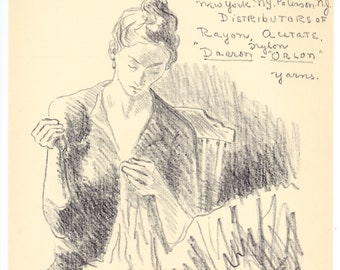 New York. N.Y. Paterson, N.J.
Distributors of
Rayon, Acetate,
Nylon
"Dacron - "Orlon"
yarns.